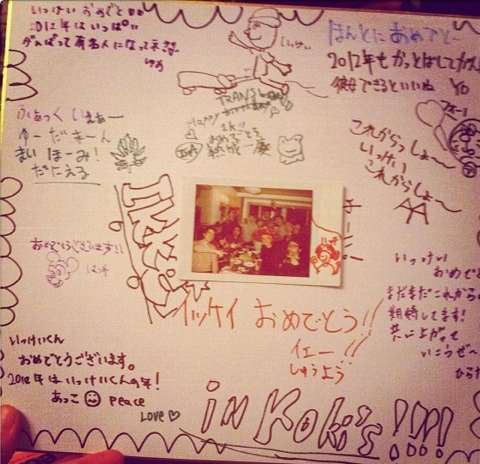 いっぱい おめでとー
2012年はいっぱい
がんばって有名人になってネ
いっけー
ほんとに おめでと〜
2012年も
彼女できるといいね YO
TRAN
Happy birthday
おめでとう
ふぁっく いぇあー
ゆー だ まーん
まい ほーみ!
だにえる
これからっしょ〜
いっけい
これからっしょ〜
IKKEI
おめでとうございます!!
いっけい
おめでと
まだまだこれから
期待してます!
共に上がって
いこうぜ〜
イッケイ おめでとう!!
イェー!!
しゅうよう
いっけいくん
おめでとうございます。
2012年はいっけいくんの年!
あっこ peace
Love
in Koki's!!!!